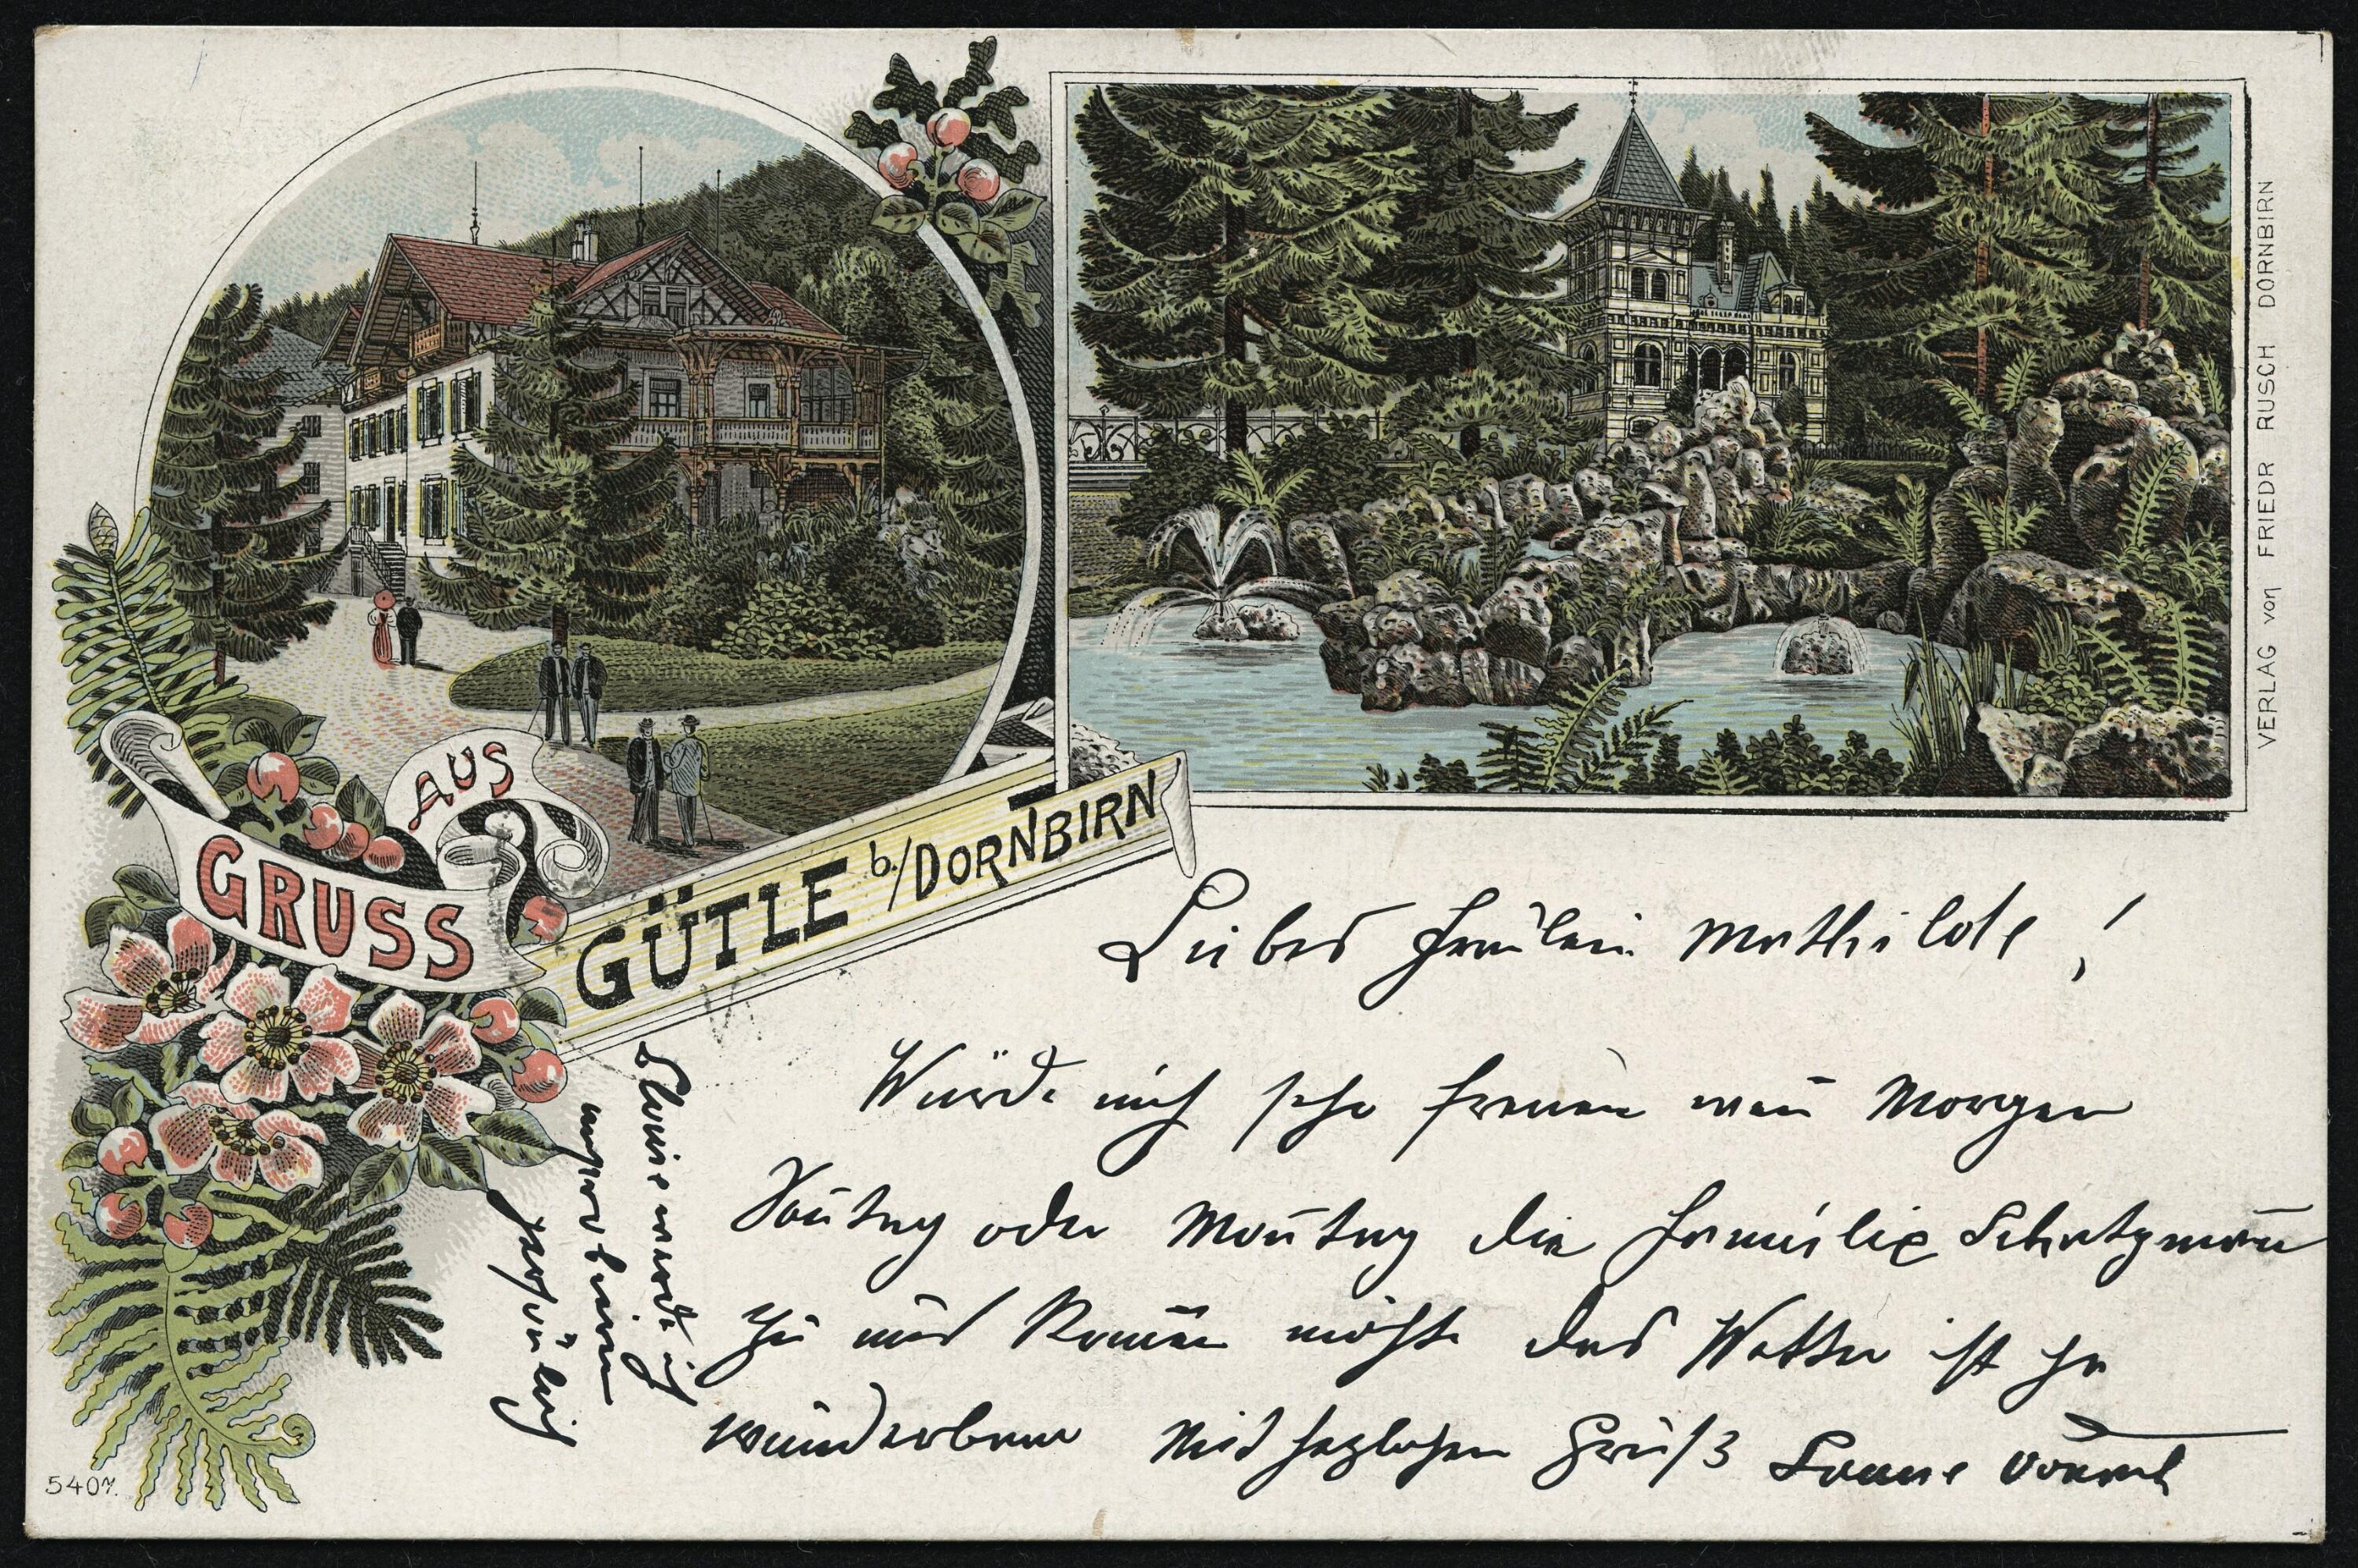 GRUSS
AUS
GÜTLE b./DORNBIRN
VERLAG von FRIEDR RUSCH DORNBIRN
Liebes Fräulein Mathilde!
Würde mich sehr freuen wen̄ Morgen
Son̄tag oder Mon̄tag die Familie Schatzman̄
zu uns kom̄en möchte das Wetter ist ja
wunderbar Mit herzlichem Gruß
werde ich
5407.